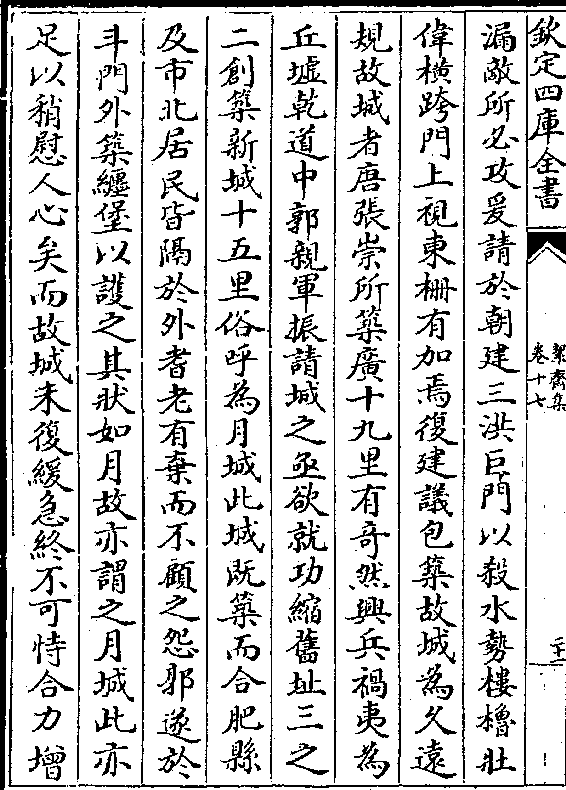 欽定四庫全書
絜齋集
卷十七
二十二
漏敵所必攻爰請於朝建三洪巨門以殺水勢樓櫓壯
偉橫跨門上視東柵有加焉復建議包築故城為久遠
規故城者唐張崇所築廣十九里有奇然興兵禍夷為
丘墟乾道中郭親軍振請城之亟欲就功縮舊址三之
二創築新城十五里俗呼為月城此城既築而合肥縣
及市北居民皆隔於外耆老有棄而不顧之怨郭遂於
斗門外築纏堡以護之其狀如月故亦謂之月城此亦
足以稍慰人心矣而故城未復緩急終不可恃合力增